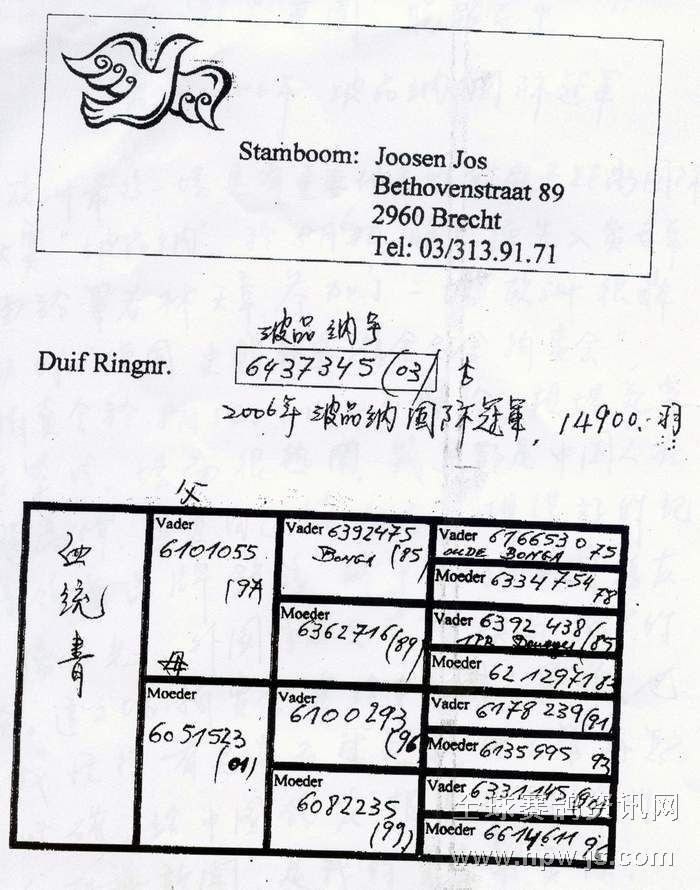 Stamboom: Joosen Jos
Bethovenstraat 89
2960 Brecht
Tel: 03/313.91.71
波品纳号
Duif Ringnr. 6437345 (03)
2006年波品纳国际冠軍, 14900.羽
父
血统書
Vader
6101055
(97
母
Moeder
6051523
(01)
Vader 6392475
BONGA (85
Moeder
6362716 (89)
Vader
6100293
(96
Moeder
6082235
(99)
Vader 6166530 75
OUDE BONGA
Moeder 6334754
78
Vader 6392438 (85
Moeder
6212971 83
Vader
6178239 (91
Moeder 6135995 93
Vader
6331145
Moeder
6614611
全球赛鸽资讯网
www.npwjs.com